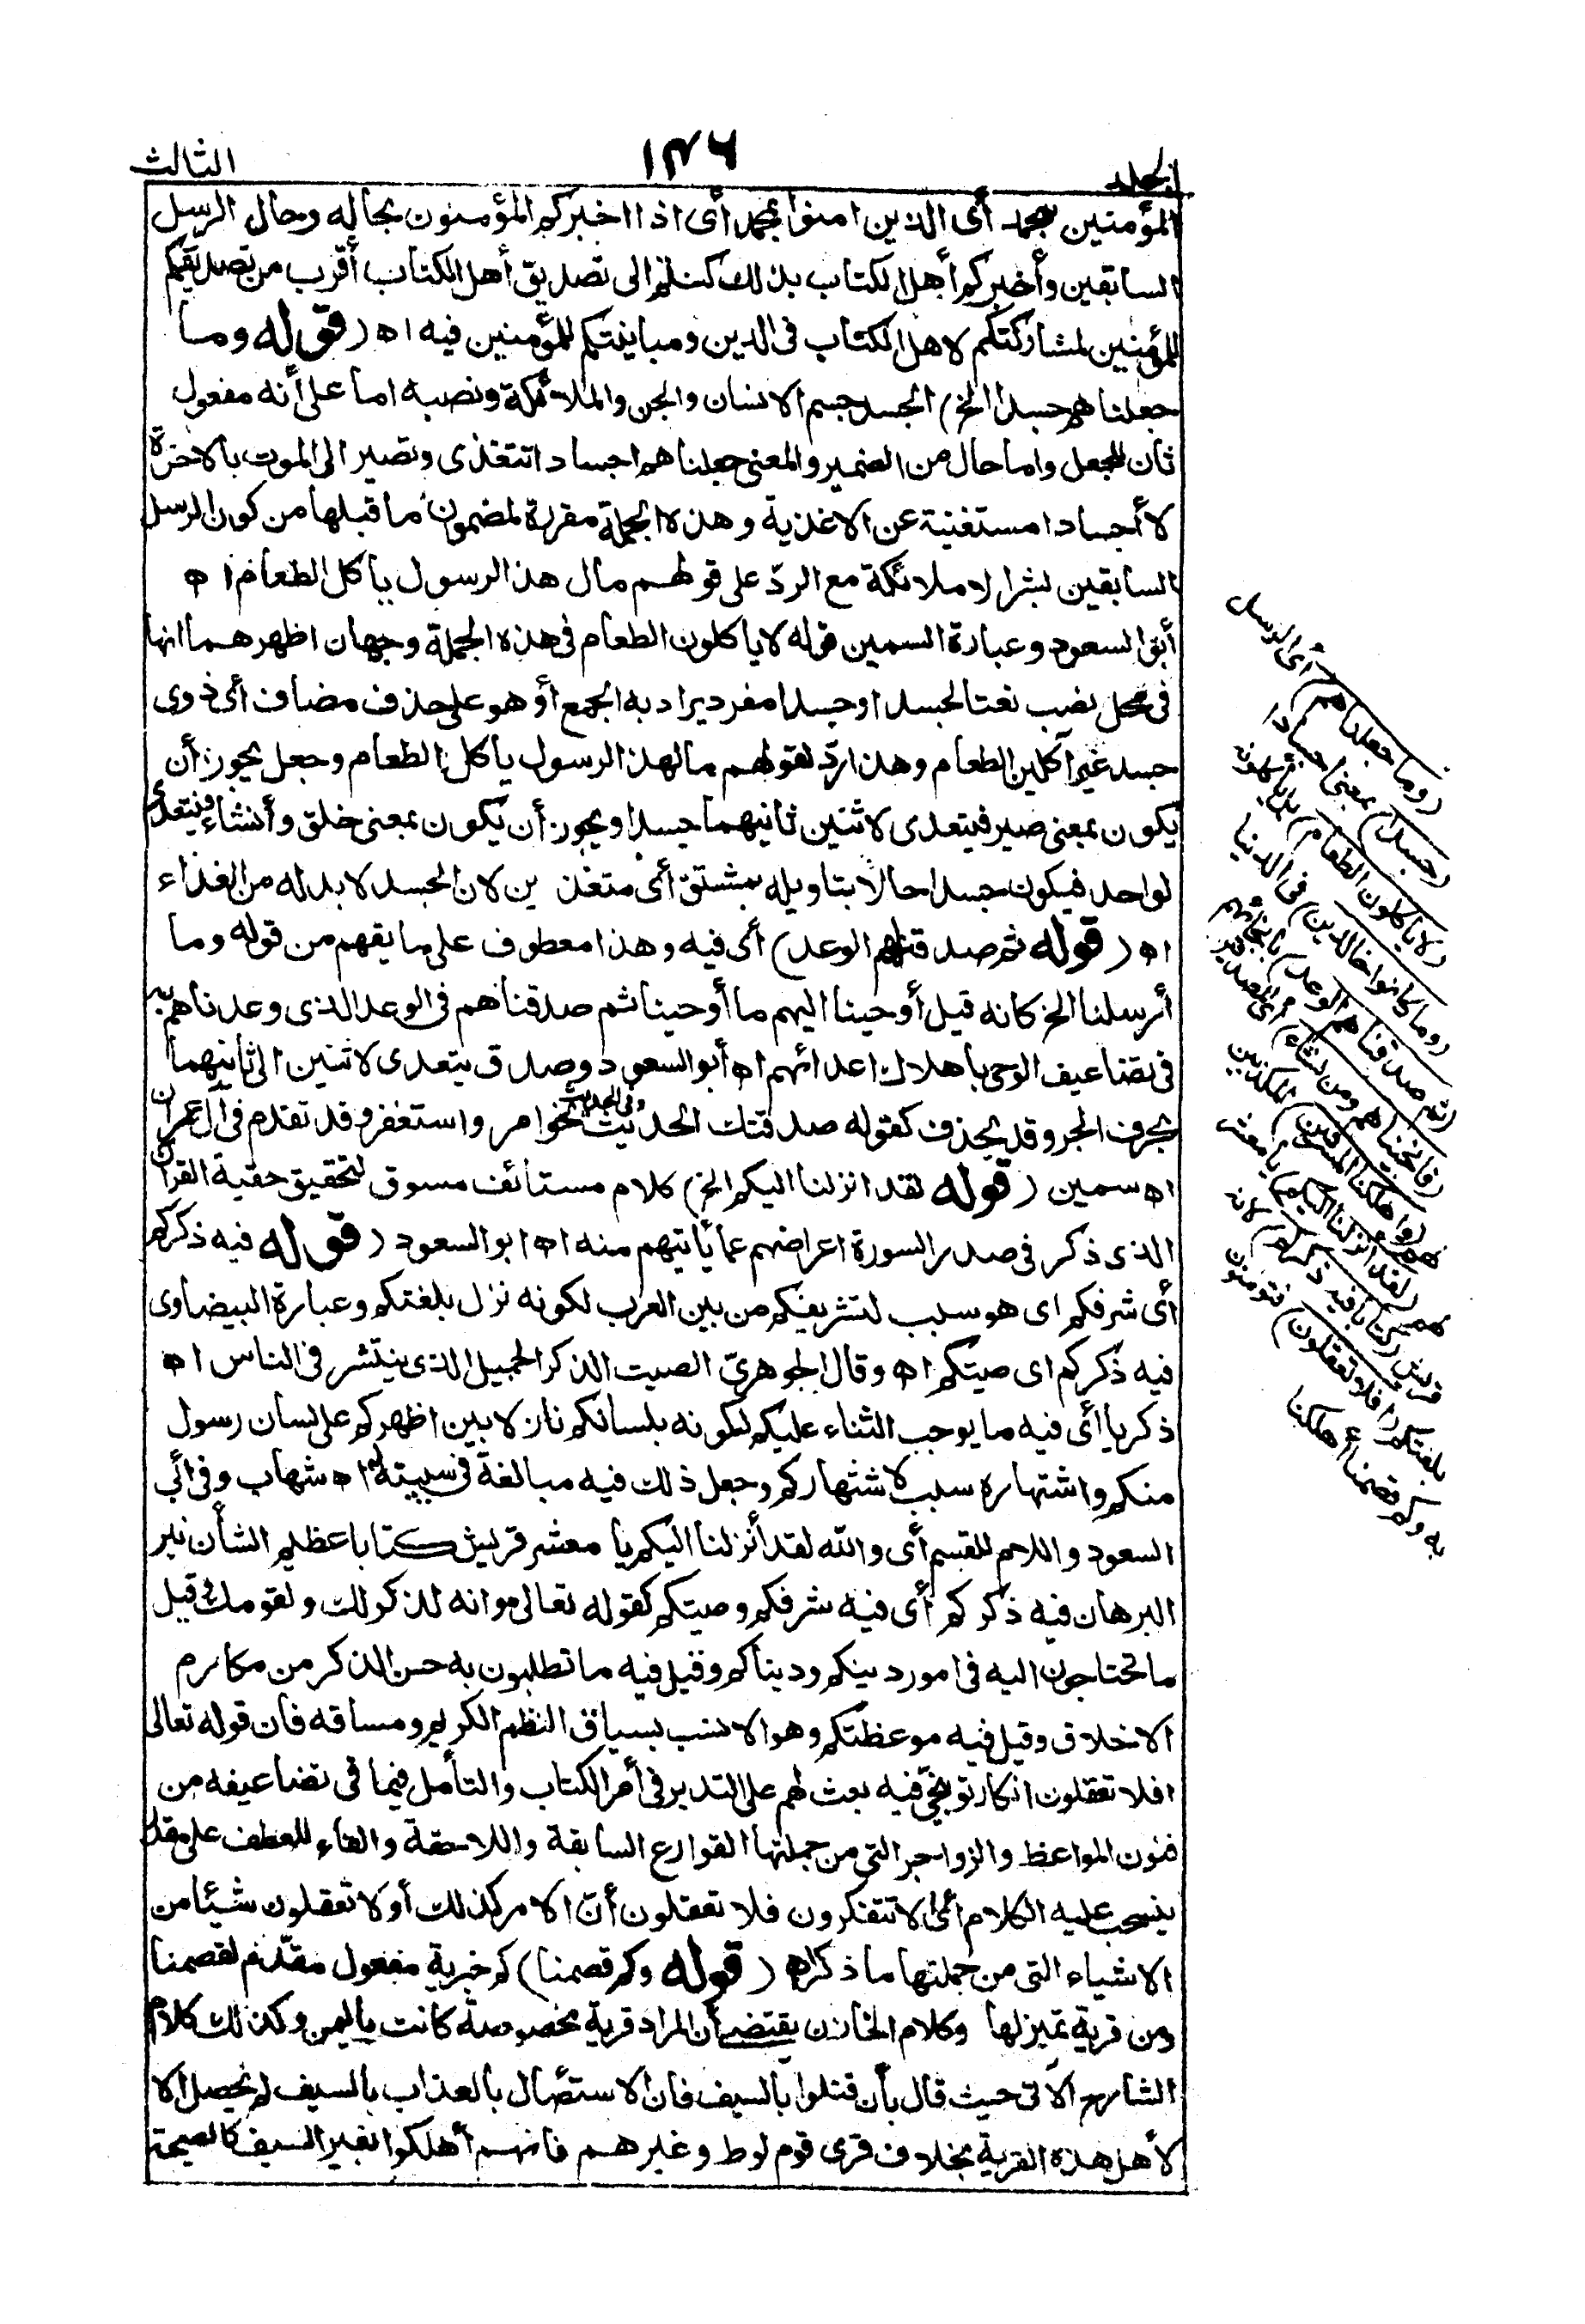 الجلد ١٣٦ الثالث
المؤمنين بمحمد أى الذين امنوا بمحمد أى اذا اخبركم المؤمنون بحاله وحال الرسل
السابقين وأخبركم أهل الكتاب بذلك كنتم الى تصديق أهل الكتاب أقرب من تصديقكم
للمؤمنين لمشاركتكم لاهل الكتاب فى الدين ومباينتكم للمؤمنين فيه اه (قوله وما
جعلناهم جسدا الخ) الجسد جسم الانسان والجن والملائكة ونصبه اما على أنه مفعول
ثان للجعل واما حال من الضمير والمعنى جعلناهم اجسادا تتغذى وتصير الى الموت بالاخرة
لا أجسادا مستغنية عن الاغذية وهذه الجملة مقررة لمضمون ما قبلها من كون الرسل
السابقين بشرا لا ملائكة مع الردّ على قولهم مال هذا الرسول يأكل الطعام اه
أبو السعود وعبارة السمين قوله لا ياكلون الطعام فى هذه الجملة وجهان اظهرهما انها
فى محل نصب نعتا لجسدا وجسدا مفرد يراد به الجمع أو هو على حذف مضاف أى ذوى
جسد غير آكلين الطعام وهذا ردّ لقولهم ما لهذا الرسول يأكل الطعام وجعل يجوز أن
يكون بمعنى صير فيتعدى لاثنين ثانيهما جسدا ويجوز أن يكون بمعنى خلق وأنشاء فيتعدى
لواحد فيكون جسدا حالا بتاويله بمشتق أى متغذين لان الجسد لا بد له من الغذاء
اه (قوله ثم صدقناهم الوعد) أى فيه وهذا معطوف على ما يفهم من قوله وما
أرسلنا الخ كانه قيل أوحينا اليهم ما أوحينا ثم صدقناهم فى الوعد الذى وعدناهم به
فى تضاعيف الوحى باهلاك اعدائهم اه أبو السعود وصدق يتعدى لاثنين الى ثانيهما
بحرف الجر وقد يحذف كقوله صدقتك الحديث وفى الحديث نحو امر واستغفر وقد تقدم فى آل عمران
اه سمين (قوله لقد انزلنا اليكم الخ) كلام مستأنف مسوق لتحقيق حقية القرآن
الذى ذكر فى صدر السورة اعراضهم عما يأتيهم منه اه ابو السعود (قوله فيه ذكركم
أى شرفكم اى هو سبب لتشريفكم من بين العرب لكونه نزل بلغتكم وعبارة البيضاوى
فيه ذكركم اى صيتكم اه وقال الجوهرىّ الصيت الذكر الجميل الذى ينتشر فى الناس اه
ذكريا أى فيه ما يوجب الثناء عليكم لكونه بلسانكم نازلا بين اظهركم على لسان رسول
منكم واشتهاره سبب لاشتهاركم وجعل ذلك فيه مبالغة فى سببيته له اه شهاب وفى أبى
السعود واللام للقسم أى والله لقد أنزلنا اليكم يا معشر قريش كتابا عظيم الشأن نير
البرهان فيه ذكركم أى فيه شرفكم وصيتكم كقوله تعالى وانه لذكر لك ولقومك وقيل
ما تحتاجون اليه فى امور دينكم ودنياكم وقيل فيه ما تطلبون به حسن الذكر من مكارم
الاخلاق وقيل فيه موعظتكم وهو الانسب بسياق النظم الكريم ومساقه فان قوله تعالى
افلا تعقلون انكار توبيخىّ فيه بعث لهم على التدبر فى أمر الكتاب والتأمل فيما فى تضاعيفه من
فنون المواعظ والزواجر التى من جملتها القوارع السابقة واللاحقة والفاء للعطف على مقدر
ينسحب عليه الكلام أى الا تتفكرون فلا تعقلون أنّ الامر كذلك أو لا تعقلون شيئا من
الاشياء التى من جملتها ما ذكر اه (قوله وكم قصمنا) كم خبرية مفعول مقدّم لقصمنا
ومن قرية تمييز لها وكلام الخازن يقتضى أن المراد قرية مخصوصة كانت باليمن وكذلك كلام
الشارح الآتى حيث قال بأن قتلوا بالسيف فان الاستئصال بالعذاب بالسيف لم يحصل الا
لأهل هذه القرية بخلاف قرى قوم لوط وغيرهم فانهم أهلكوا بغير السيف كالصيحة
(وما جعلناهم) أى الرسل
(جسدا) بمعنى اجسادا
(لا ياكلون الطعام) بل ياكلونه
(وما كانوا خالدين) فى الدنيا
(ثم صدقناهم الوعد) بانجائهم
(فانجيناهم ومن نشاء) أى المصدقين
(واهلكنا المسرفين) المكذبين
(لقد انزلنا اليكم) يا معشر
قريش (كتابا فيه ذكركم) لانه
بلغتكم (افلا تعقلون) فتؤمنون
به وكم قصمنا أهلكنا